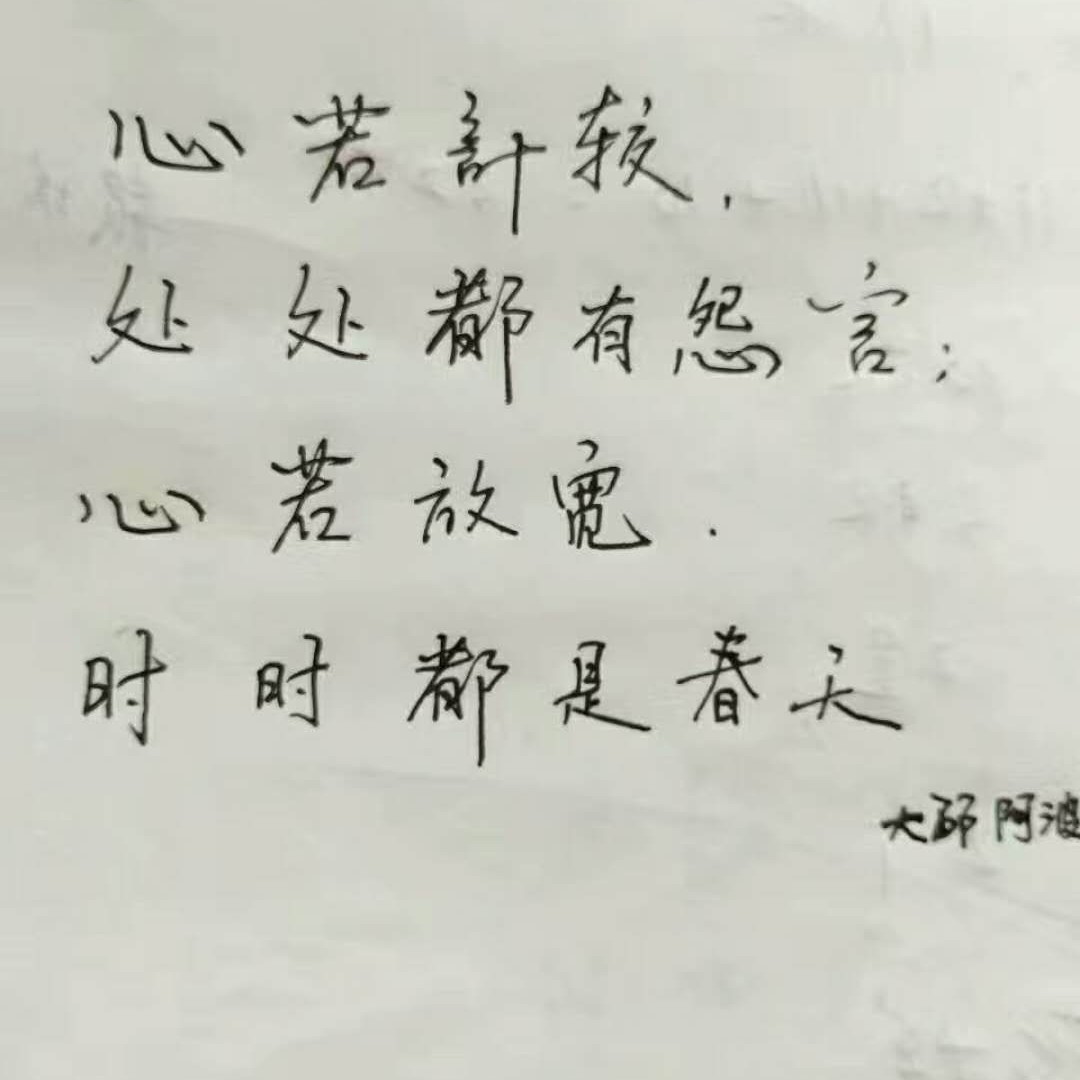 心若計较,
处处都有怨言;
心若放寬.
时时都是春天
大师阿波